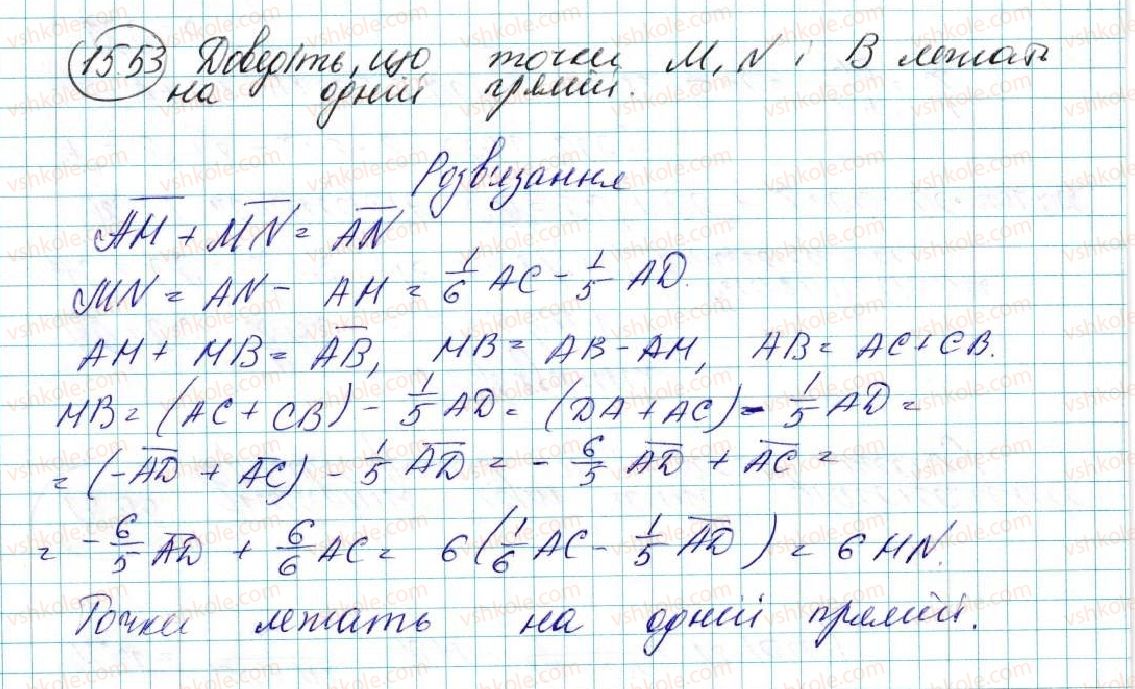 15.53 Доведіть, що точки M, N і B лежать
на одній прямій.
Розв'язання
A̅M̅ + M̅N̅ = A̅N̅
MN = AN - AM = 1/6 AC - 1/5 AD.
AM + MB = A̅B̅, MB = AB - AM, AB = AC + CB.
MB = (AC + CB) - 1/5 AD = (DA + AC) - 1/5 AD =
= (-A̅D̅ + A̅C̅) - 1/5 A̅D̅ = - 6/5 A̅D̅ + A̅C̅ =
= - 6/5 A̅D̅ + 6/6 AC = 6 (1/6 AC - 1/5 A̅D̅) = 6 MN.
Точки лежать на одній прямій.
vshkole.com